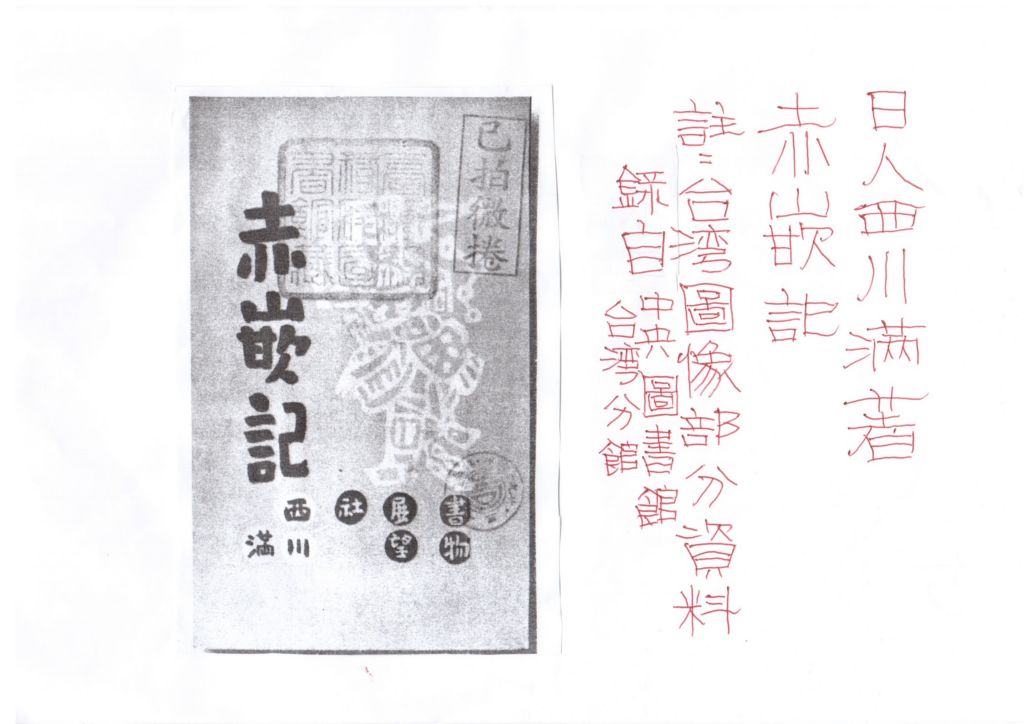 日人西川滿著
赤嵌記
註：台湾圖像部分資料
錄自
中央圖書館
台湾分館
已拍微捲
赤嵌記
書物
展望
社
西川
滿